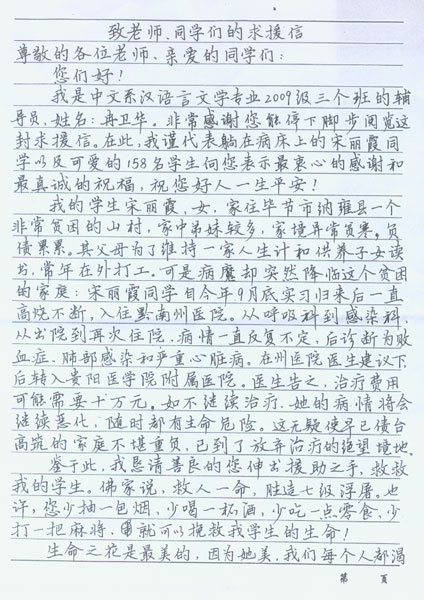 致老师、同学们的求援信
尊敬的各位老师、亲爱的同学们：
您们好！
我是中文系汉语言文学专业2009级三个班的辅
导员，姓名：冉卫华。非常感谢您能停下脚步阅览这
封求援信。在此，我谨代表躺在病床上的宋丽霞同
学以及可爱的158名学生向您表示最衷心的感谢和
最真诚的祝福，祝您好人一生平安！
我的学生宋丽霞，女，家住毕节市纳雍县一个
非常贫困的山村，家中弟妹较多，家境异常贫寒。负
债累累。其父母为了维持一家人生计和供养子女读
书，常年在外打工。可是病魔却突然降临这个贫困
的家庭：宋丽霞同学自今年9月底实习归来后一直
高烧不断，入住黔南州医院。从呼吸科到感染科，
从出院到再次住院，病情一直反复不定，后诊断为败
血症、肺部感染和严重心脏病。在州医院医生建议下，
后转入贵阳医学院附属医院。医生告之，治疗费用
可能需要十万元。如不继续治疗，她的病情将会
继续恶化，随时都有生命危险。这无疑使早已债台
高筑的家庭不堪重负，已到了放弃治疗的绝望境地。
鉴于此，我恳请善良的您伸出援助之手，救救
我的学生。佛家说，救人一命，胜造七级浮屠。也
许，您少抽一包烟、少喝一杯酒，少吃一点零食、少
打一把麻将，就可以挽救我学生的生命！
生命之花是最美的，因为她美，我们每个人都渴
第 页